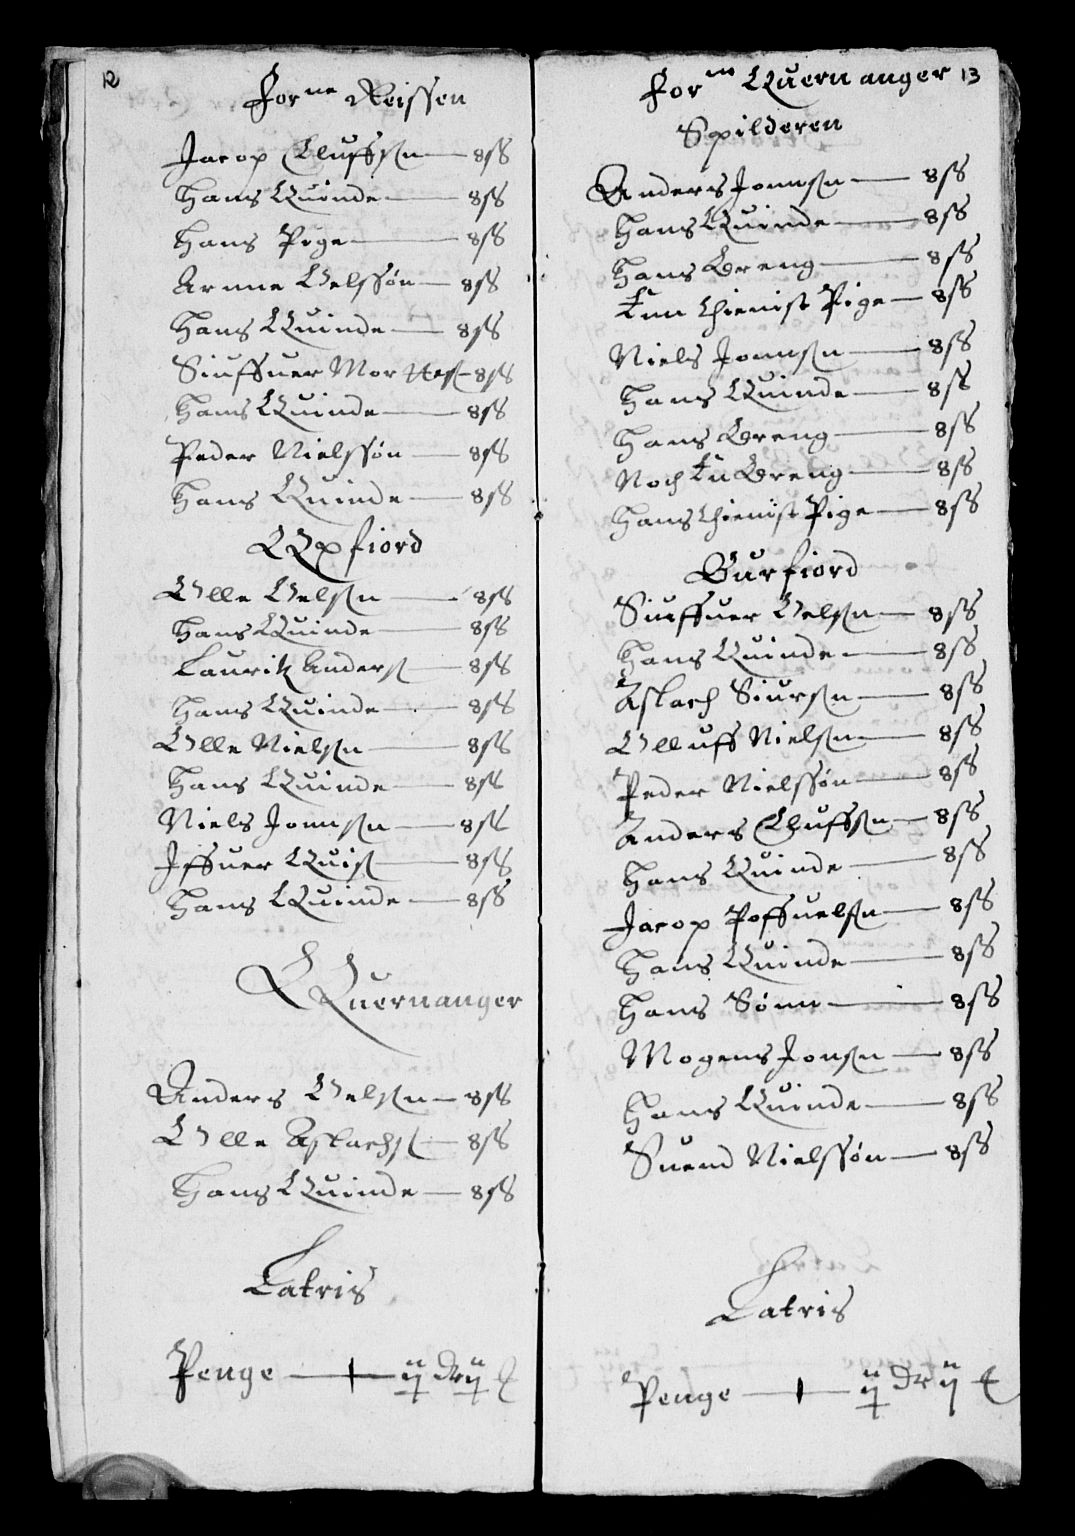 12
for ne Reissen
Jacop Oluffsn 8 ß
Hans Quinde 8 ß
Hans Pige 8 ß
Arnne Oelssøn 8 ß
Hans Quinde 8 ß
Siuffuer Mortens 8 ß
Hans Quinde 8 ß
Peder Nielssøn 8 ß
Hans Quinde 8 ß
Upfiord
Olle Oelsn 8 ß
Hans Quinde 8 ß
Lauritz Anders 8 ß
Hans Quinde 8 ß
Olle Nielsn 8 ß
Hans Quinde 8 ß
Niels Jonnsn 8 ß
Iffuer Quist 8 ß
Hans Quinde 8 ß
Quernanger
Anders Oelsn 8 ß
Olle Aslachs 8 ß
Hans Quinde 8 ß
Latris
Penge ij dr ij
13
for ne Quernanger
Spilderen
Anders Jonnsn 8 ß
Hans Quinde 8 ß
Hans Dreng 8 ß
Thienist Pige 8 ß
Niels Jonnsn 8 ß
Hans Quinde 8 ß
Hans Dreng 8 ß
Noch En Dreng 8 ß
Hans Thienist Pige 8 ß
Burfiord
Siuffuer Oelsn 8 ß
Hans Quinde 8 ß
Aslach Siursn 8 ß
Olluff Nielsn 8 ß
Peder Nielssøn 8 ß
Anders Oluffsn 8 ß
Hans Quinde 8 ß
Jacop Poffuelsn 8 ß
Hans Quinde 8 ß
Hans Sønn 8 ß
Mogens Jonsn 8 ß
Hans Quinde 8 ß
Suend Nielssøn 8 ß
Latris
Penge ij dr ij